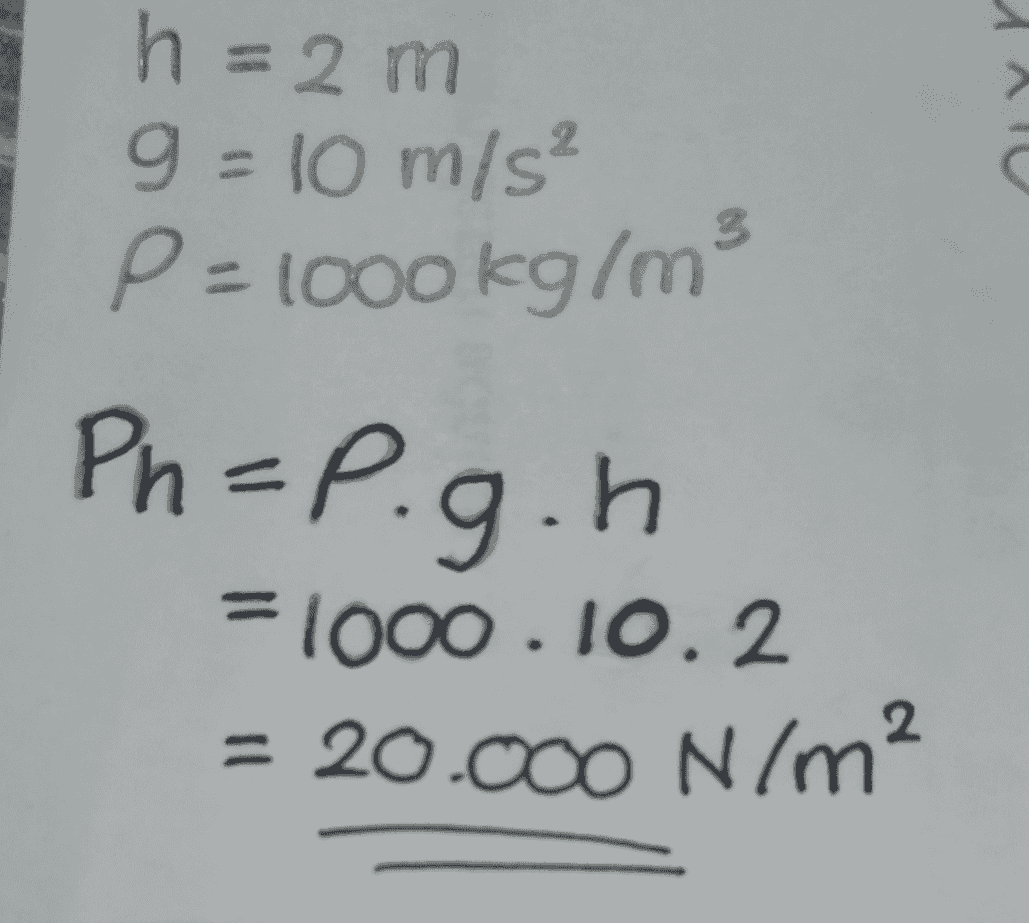 h = 2 m
g = 10 m/s²
ρ = 1000 kg/m³
Ph = ρ . g . h
= 1000 . 10 . 2
= 20.000 N/m²